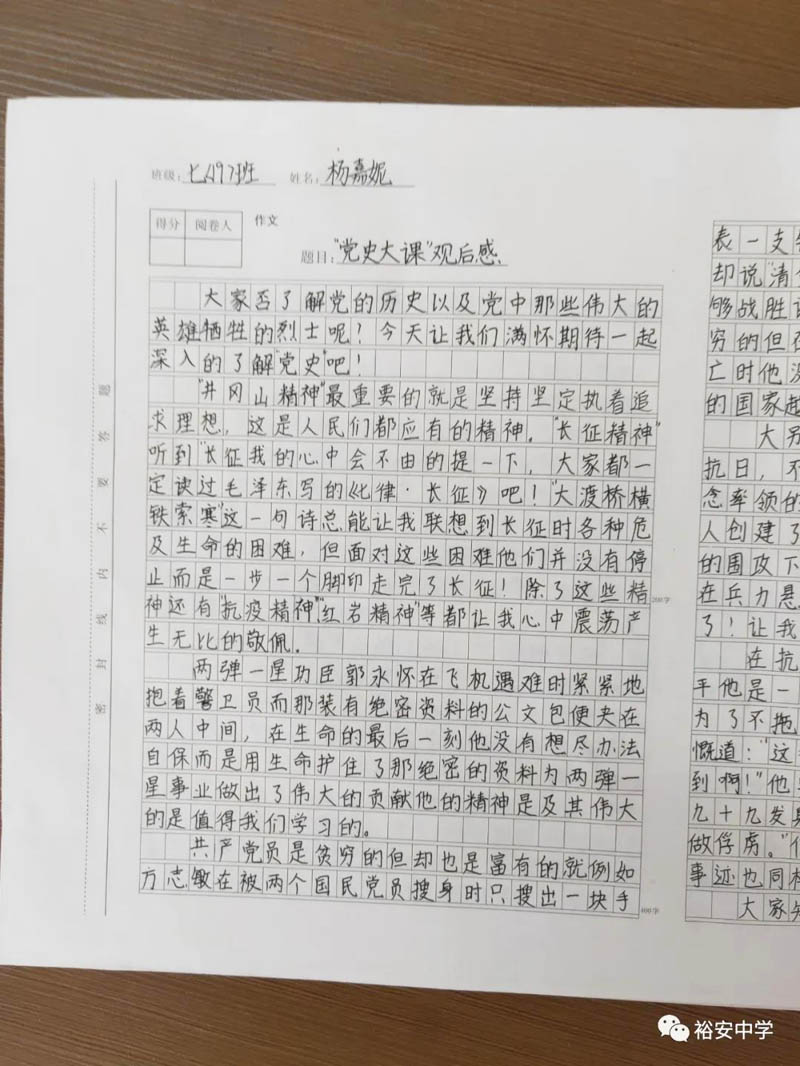 班级：七(19)班 姓名：杨嘉妮
得分 阅卷人 作文
题目：“党史大课”观后感
大家否了解党的历史以及党中那些伟大的
英雄牺牲的烈士呢！今天让我们满怀期待一起
深入的了解“党史”吧！
“井冈山精神”最重要的就是坚持坚定执着追
求理想，这是人民们都应有的精神．“长征精神”
听到“长征我的心中会不由的提一下，大家都一
定读过毛泽东写的《七律·长征》吧！“大渡桥横
铁索寒”这一句诗总能让我联想到长征时各种危
及生命的困难，但面对这些困难他们并没有停
止而是一步一个脚印走完了长征！除了这些精
200字
神还有“抗疫精神”“红岩精神”等都让我心中震荡产
生无比的敬佩．
两弹一星功臣郭永怀在飞机遇难时紧紧地
抱着警卫员而那装有绝密资料的公文包便夹在
两人中间，在生命的最后一刻他没有想尽办法
自保而是用生命护住了那绝密的资料为两弹一
星事业做出了伟大的贡献他的精神是及其伟大
的是值得我们学习的。
共产党员是贫穷的但却也是富有的就例如
方志敏在被两个国民党员搜身时只搜出一块手
400字
密封线内不要答题
表一支
却说“清
够战胜
穷的但
亡时他没
的国家
大别
抗日，不
念率领的
人创建了
的围攻下
在兵力悬
了！让我
在抗
平他是一
为了不拖
慨道：“这
到啊！”他
九十九发
做俘虏。”
事迹也同
大家
裕安中学